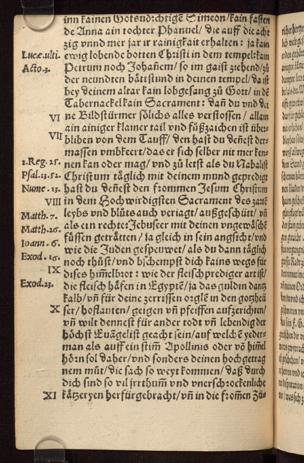 inn kainen Gotsdichtige Simeon/ kain fasten
de Anna ain tochter Phanuel/ die auff die acht
zig vnnd mer jar ir rainigkait erhalten: ja kain
Lucæ.ulti. ewig lobende botten Christi in dem tempel: kain
Acto.3. Petrum noch Johañem/ so im gaist ziehend zů
der neundten bättstund in deinen tempel/ da ist
bey deinem altar kain lobgesang zů Gott/ in dē
Tabernackel kain Sacrament: dañ du vnd dei
VI ne Bildstürmer sölichs alles verstossen/ allain
ain ainiger klainer tail vnd fůßzaichen ist über
VII bliben von dem Tauff/ den hast du deñest der
massen vmbkert/ das er sich selber nit mer ken⸗
1.Reg.25. nen kan oder mag/ vnd zů letst als du Nabalist
Psal.13.52. Christum täglich mit deinem mund gepredigt
Nume.13. hast du deñest den frommen Jesum Christum
VIII in dem Hochwirdigsten Sacrament des zarté
Math.7. leybs vnd blůts auch veriagt/ außgeschüt/ vñ
Math.26. als ein rechter Jebuseer mit deinen vngewäschē
Ioann.6. füssen getrãtten/ ja gleich in sein angsicht/ vnd
Exod.16. wie die Juden gespuwet/ als du dann täglich
IX noch thůst/ vnd bschempst dich kains wegs für
difes himelbrot: wie der fleischprediger artist/
Exod.23. die fleisch häfen in Egyptē/ ja das guldin dantz
kalb/ vñ für deine zerrissen orglē in den gotzheü
X ser/ hostauten/ geigen vñ pfeiffen auffzerichten/
vñ wilt dennest für ander todt vñ lebendig der
höchst Euãgelist geacht sein/ auf welchē yeder⸗
man als auff ein stim Apollinis oder vō himel
hörn sol daher/ vnd sonders deinen hochgetrag
nem můt/ die sach so weyt kommen/ daß durch
dich sind so vil jrrthum̃ vnd vnerschrockenliche
XI kätzeryen herfür gebracht/ vñ in die from̃en Züs